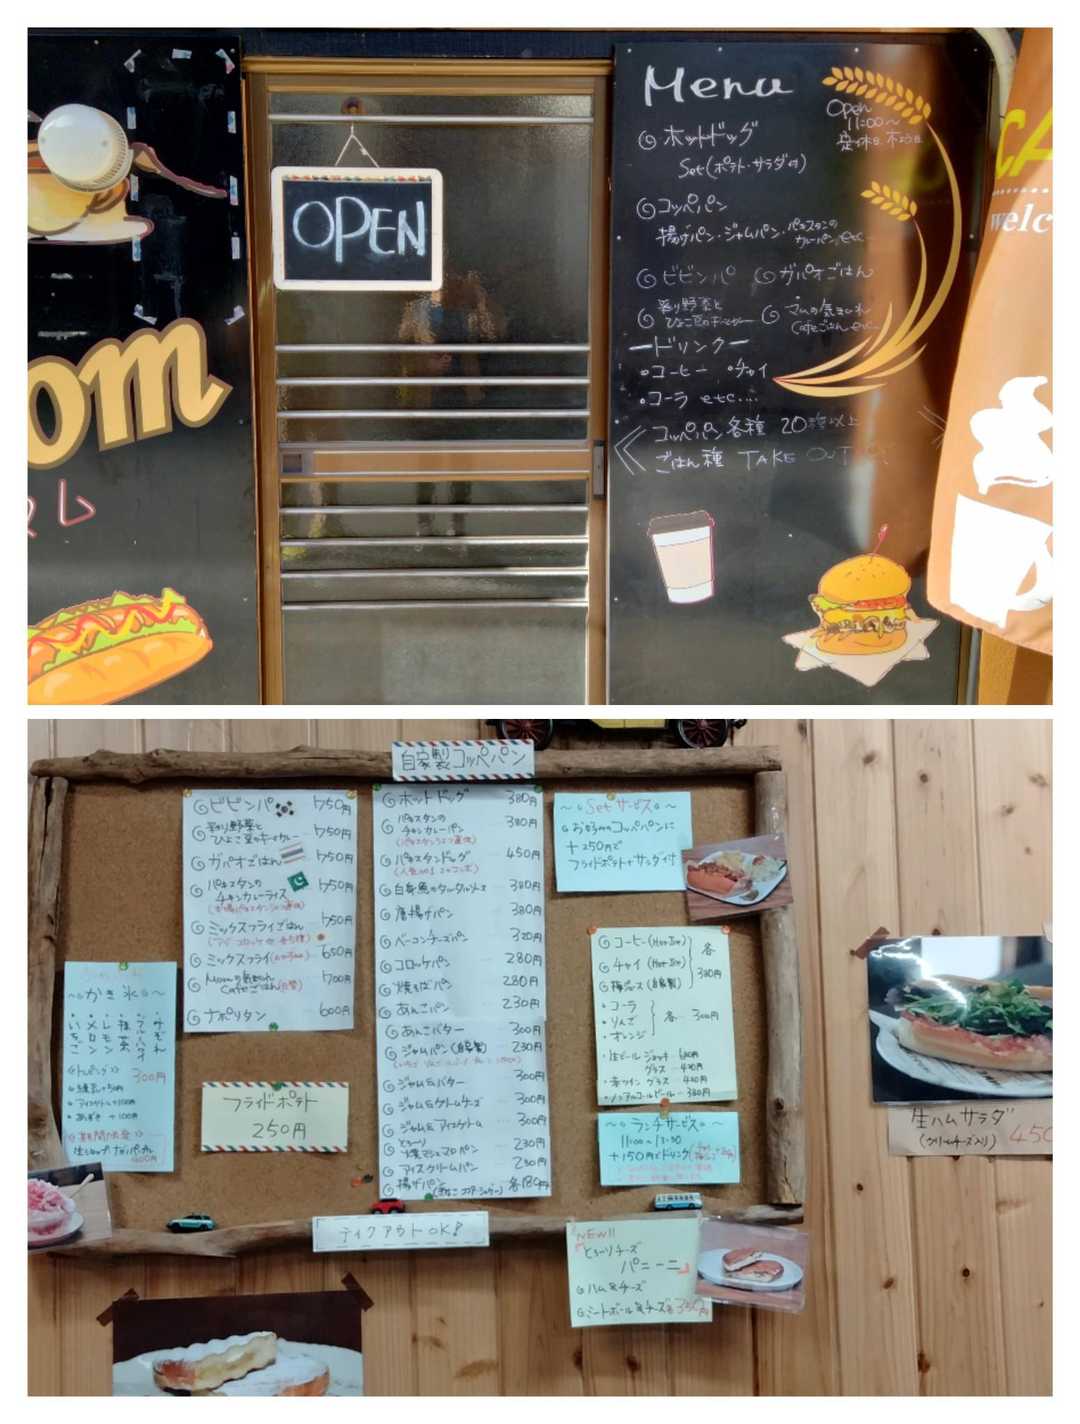 om
OPEN
Menu
Open
11:00～
定休日 木曜日
ホットドッグ
Set(ポテト・サラダ付)
コッペパン
揚げパン・ジャムパン・パキスタンの
カレーパン etc
ビビンパ ガパオごはん
彩り野菜と
ひよこ豆のキーマカレー
マムの気まぐれ
Cafeごはん etc
ードリンクー
・コーヒー ・チャイ
・コーラ etc....
コッペパン各種 20種以上
ごはん種 TAKE OUT
CA
welc
自家製コッペパン
ビビンパ 750円
彩り野菜と
ひよこ豆のキーマカレー 750円
ガパオごはん 750円
パキスタンの
チキンカレーライス 750円
ミックスフライごはん 750円
ミックスフライ 650円
Momの気まぐれ
Cafeごはん 700円
ナポリタン 600円
フライドポテト
250円
ホットドッグ 380円
パキスタンの
チキンカレーパン 380円
パキスタンドッグ 450円
白身魚のタルタルソース 380円
唐揚げパン 380円
ベーコンチーズパン 320円
コロッケパン 280円
焼そばパン 280円
あんこパン 230円
あんこバター 300円
ジャムパン(自家製) 230円
ジャム&バター 300円
ジャム&クリームチーズ 300円
ジャム&アイスクリーム 300円
とろ～り
焼マシュマロパン 230円
アイスクリームパン 230円
揚げパン(きなこ ココア シュガー) 各180円
～Setサービス～
お好みのコッペパンに
+250円で
フライドポテト+サラダ付
コーヒー(Hot Ice)
チャイ(Hot Ice)
梅ジュース(自家製)
各
380円
・コーラ
・りんご
・オレンジ
各 300円
・生ビール ジョッキ
グラス
・赤ワイン グラス
・ノンアルコールビール 380円
～ランチサービス～
11:00～13:30
+150円でドリンク
～かき氷～
いちご
メロン
レモン
300円
《トッピング》
練乳+50円
アイスクリーム+100円
あずき +100円
《期間限定》
テイクアウトOK!
NEW!!
とろ～りチーズ
パニーニ
ハム&チーズ
ミートボール&チーズ 各350円
生ハムサラダ
(クリームチーズ入り) 450